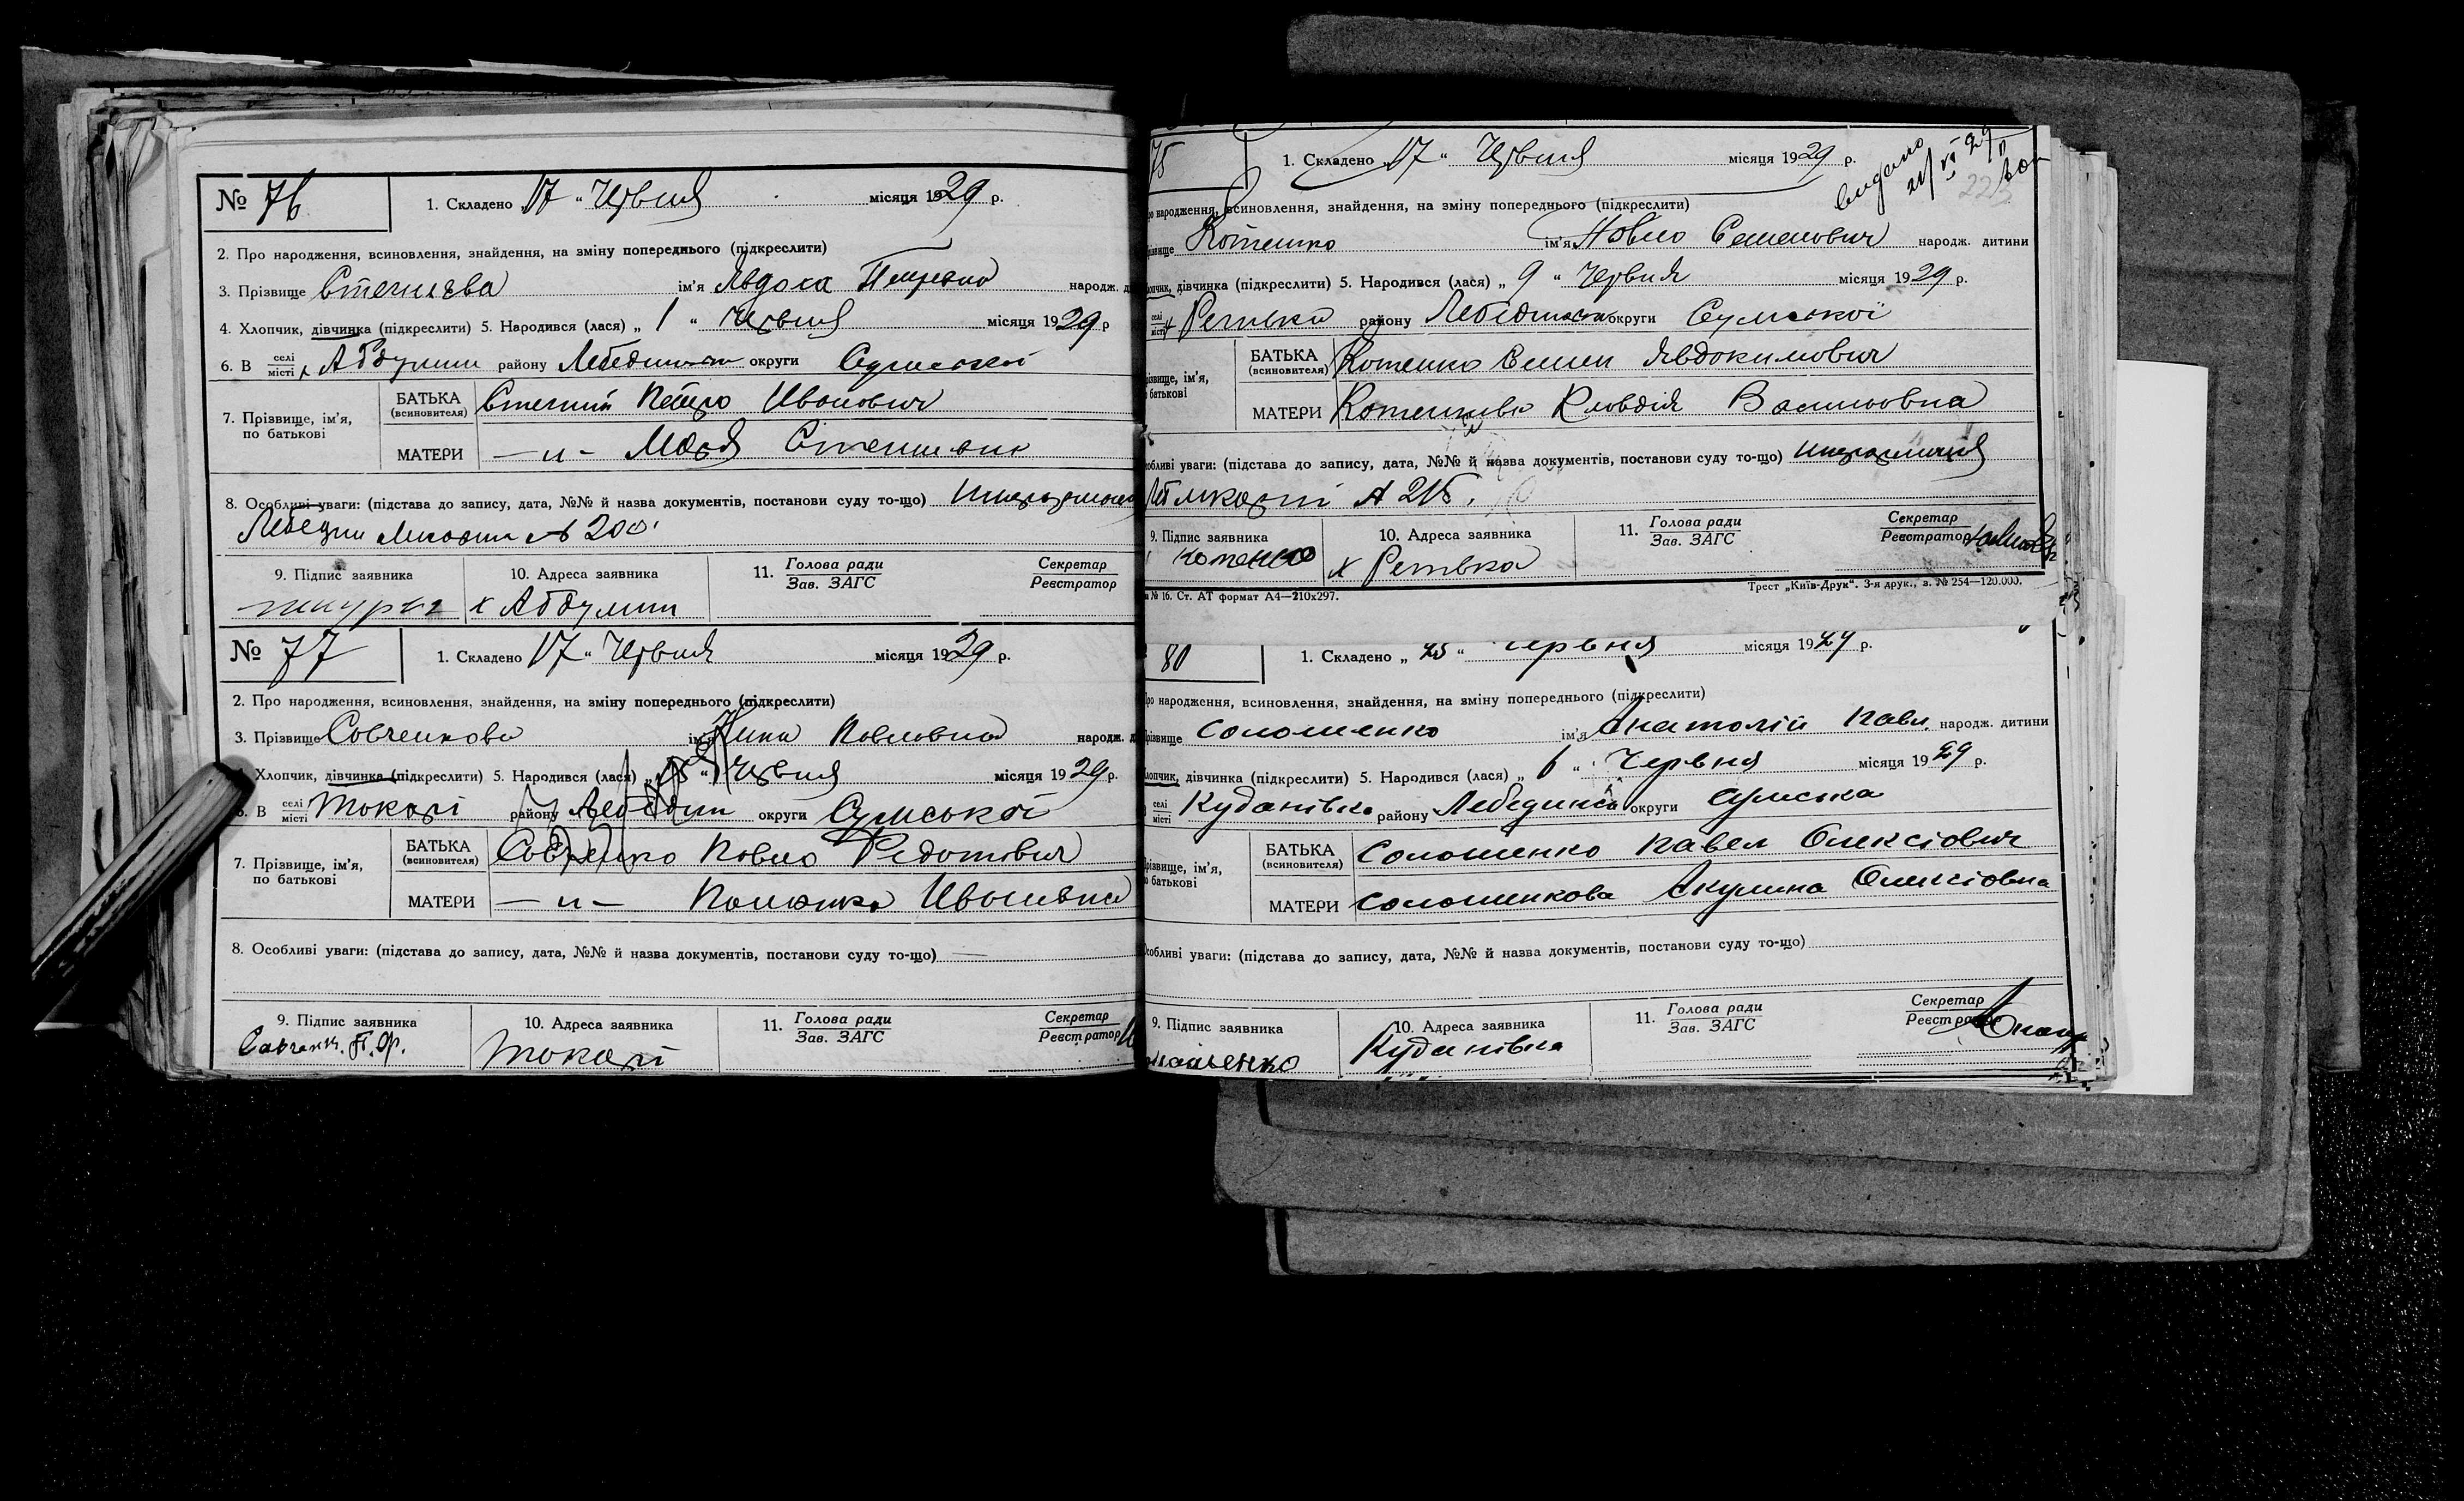 № 76
1. Складено „17“ Червня місяця 1929 р.
2. Про народження, всиновлення, знайдення, на зміну попереднього (підкреслити)
3. Прізвище ім'я Авдоха Петровна народж.
4. Хлопчик, дівчинка (підкреслити) 5. Народився (лася) „1“ Червня місяця 1929 р
6. В селі/місті х Абдулин району Лебединськ округи Сумської
7. Прізвище, ім'я, по батькові
БАТЬКА (всиновителя) Степин Петро Иванович
МАТЕРИ — и — Марія
8. Особливі уваги: (підстава до запису, дата, №№ й назва документів, постанови суду то-що)
Лебедин № 200
9. Підпис заявника
10. Адреса заявника х Абдулин
11. Голова ради / Зав. ЗАГС
Секретар / Реєстратор
№ 77
1. Складено 17 “ Червня місяця 1929 р.
2. Про народження, всиновлення, знайдення, на зміну попереднього (підкреслити)
3. Прізвище Савченкова ім'я Нина Павловна народж.
Хлопчик, дівчинка (підкреслити) 5. Народився (лася) „ “ Червня місяця 1929 р.
6. В селі/місті Токарі району Лебедин округи Сумської
7. Прізвище, ім'я, по батькові
БАТЬКА (всиновителя) Савченко Павло Федотович
МАТЕРИ — и — Ивановна
8. Особливі уваги: (підстава до запису, дата, №№ й назва документів, постанови суду то-що) —
9. Підпис заявника Савченк.
10. Адреса заявника Токарі
11. Голова ради / Зав. ЗАГС
Секретар / Реєстратор
75
1. Складено „17“ Червня місяця 1929 р.
видано 21/VI 29
223
ро народження, всиновлення, знайдення, на зміну попереднього (підкреслити)
різвище Котенко ім'я Павло Семенович народж. дитини
лопчик, дівчинка (підкреслити) 5. Народився (лася) „9“ Червня місяця 1929 р.
селі/місті х Ретівка району Лебединськ округи Сумської
різвище, ім'я, батькові
БАТЬКА (всиновителя) Котенко Семен Явдокимович
МАТЕРИ Котенкова Клавдія Васильовна
собливі уваги: (підстава до запису, дата, №№ й назва документів, постанови суду то-що)
№ 215.
9. Підпис заявника Котенко
10. Адреса заявника х Ретівка
11. Голова ради / Зав. ЗАГС
Секретар / Реєстратор
№ 16. Ст. АТ формат А4—210х297.
Трест „Київ-Друк“. 3-я друк., з. № 254—120.000.
80
1. Складено „25“ Червня місяця 1929 р.
ро народження, всиновлення, знайдення, на зміну попереднього (підкреслити)
різвище Соломенко ім'я Анатолій Павл. народж. дитини
лопчик, дівчинка (підкреслити) 5. Народився (лася) „6“ Червня місяця 1929 р.
селі/місті Куданівка району Лебединськ округи Сумська
різвище, ім'я, батькові
БАТЬКА (всиновителя) Соломенко Павел Олексіович
МАТЕРИ Соломенкова Акулина Олексіовна
собливі уваги: (підстава до запису, дата, №№ й назва документів, постанови суду то-що)
9. Підпис заявника
10. Адреса заявника Куданівка
11. Голова ради / Зав. ЗАГС
Секретар / Реєстратор